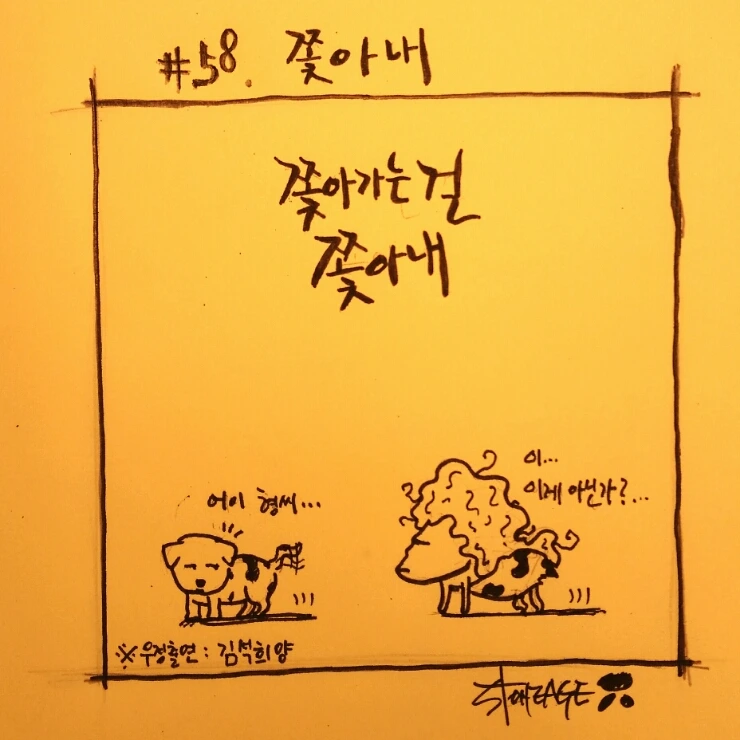 #58. 쫓아내
쫓아가는 걸
쫓아내
어이 형씨...
이...
이게 아닌가?...
※우정출연 : 김석희양